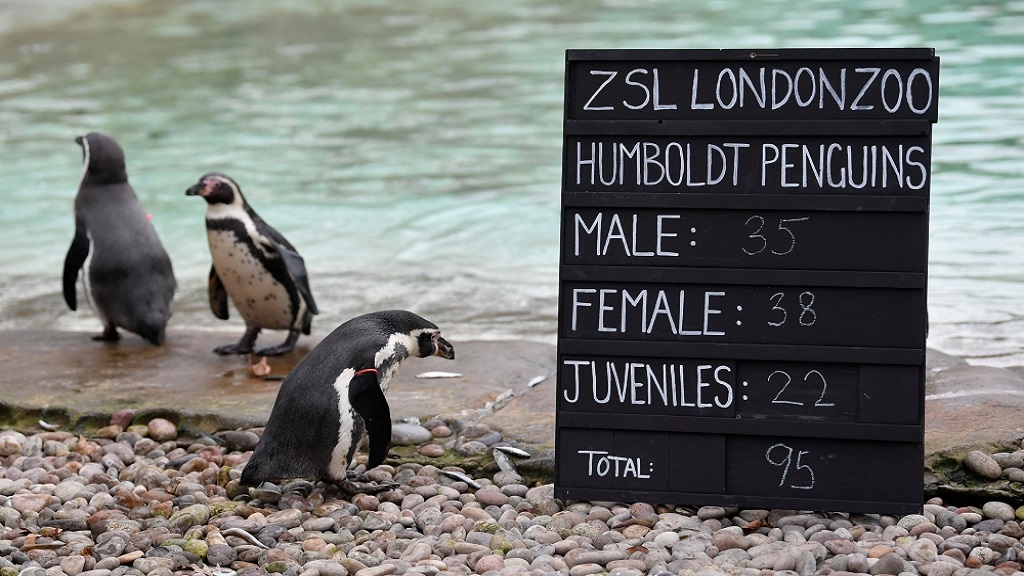 ZSL LONDON ZOO
HUMBOLDT PENGUINS
MALE: 35
FEMALE: 38
JUVENILES: 22
TOTAL: 95